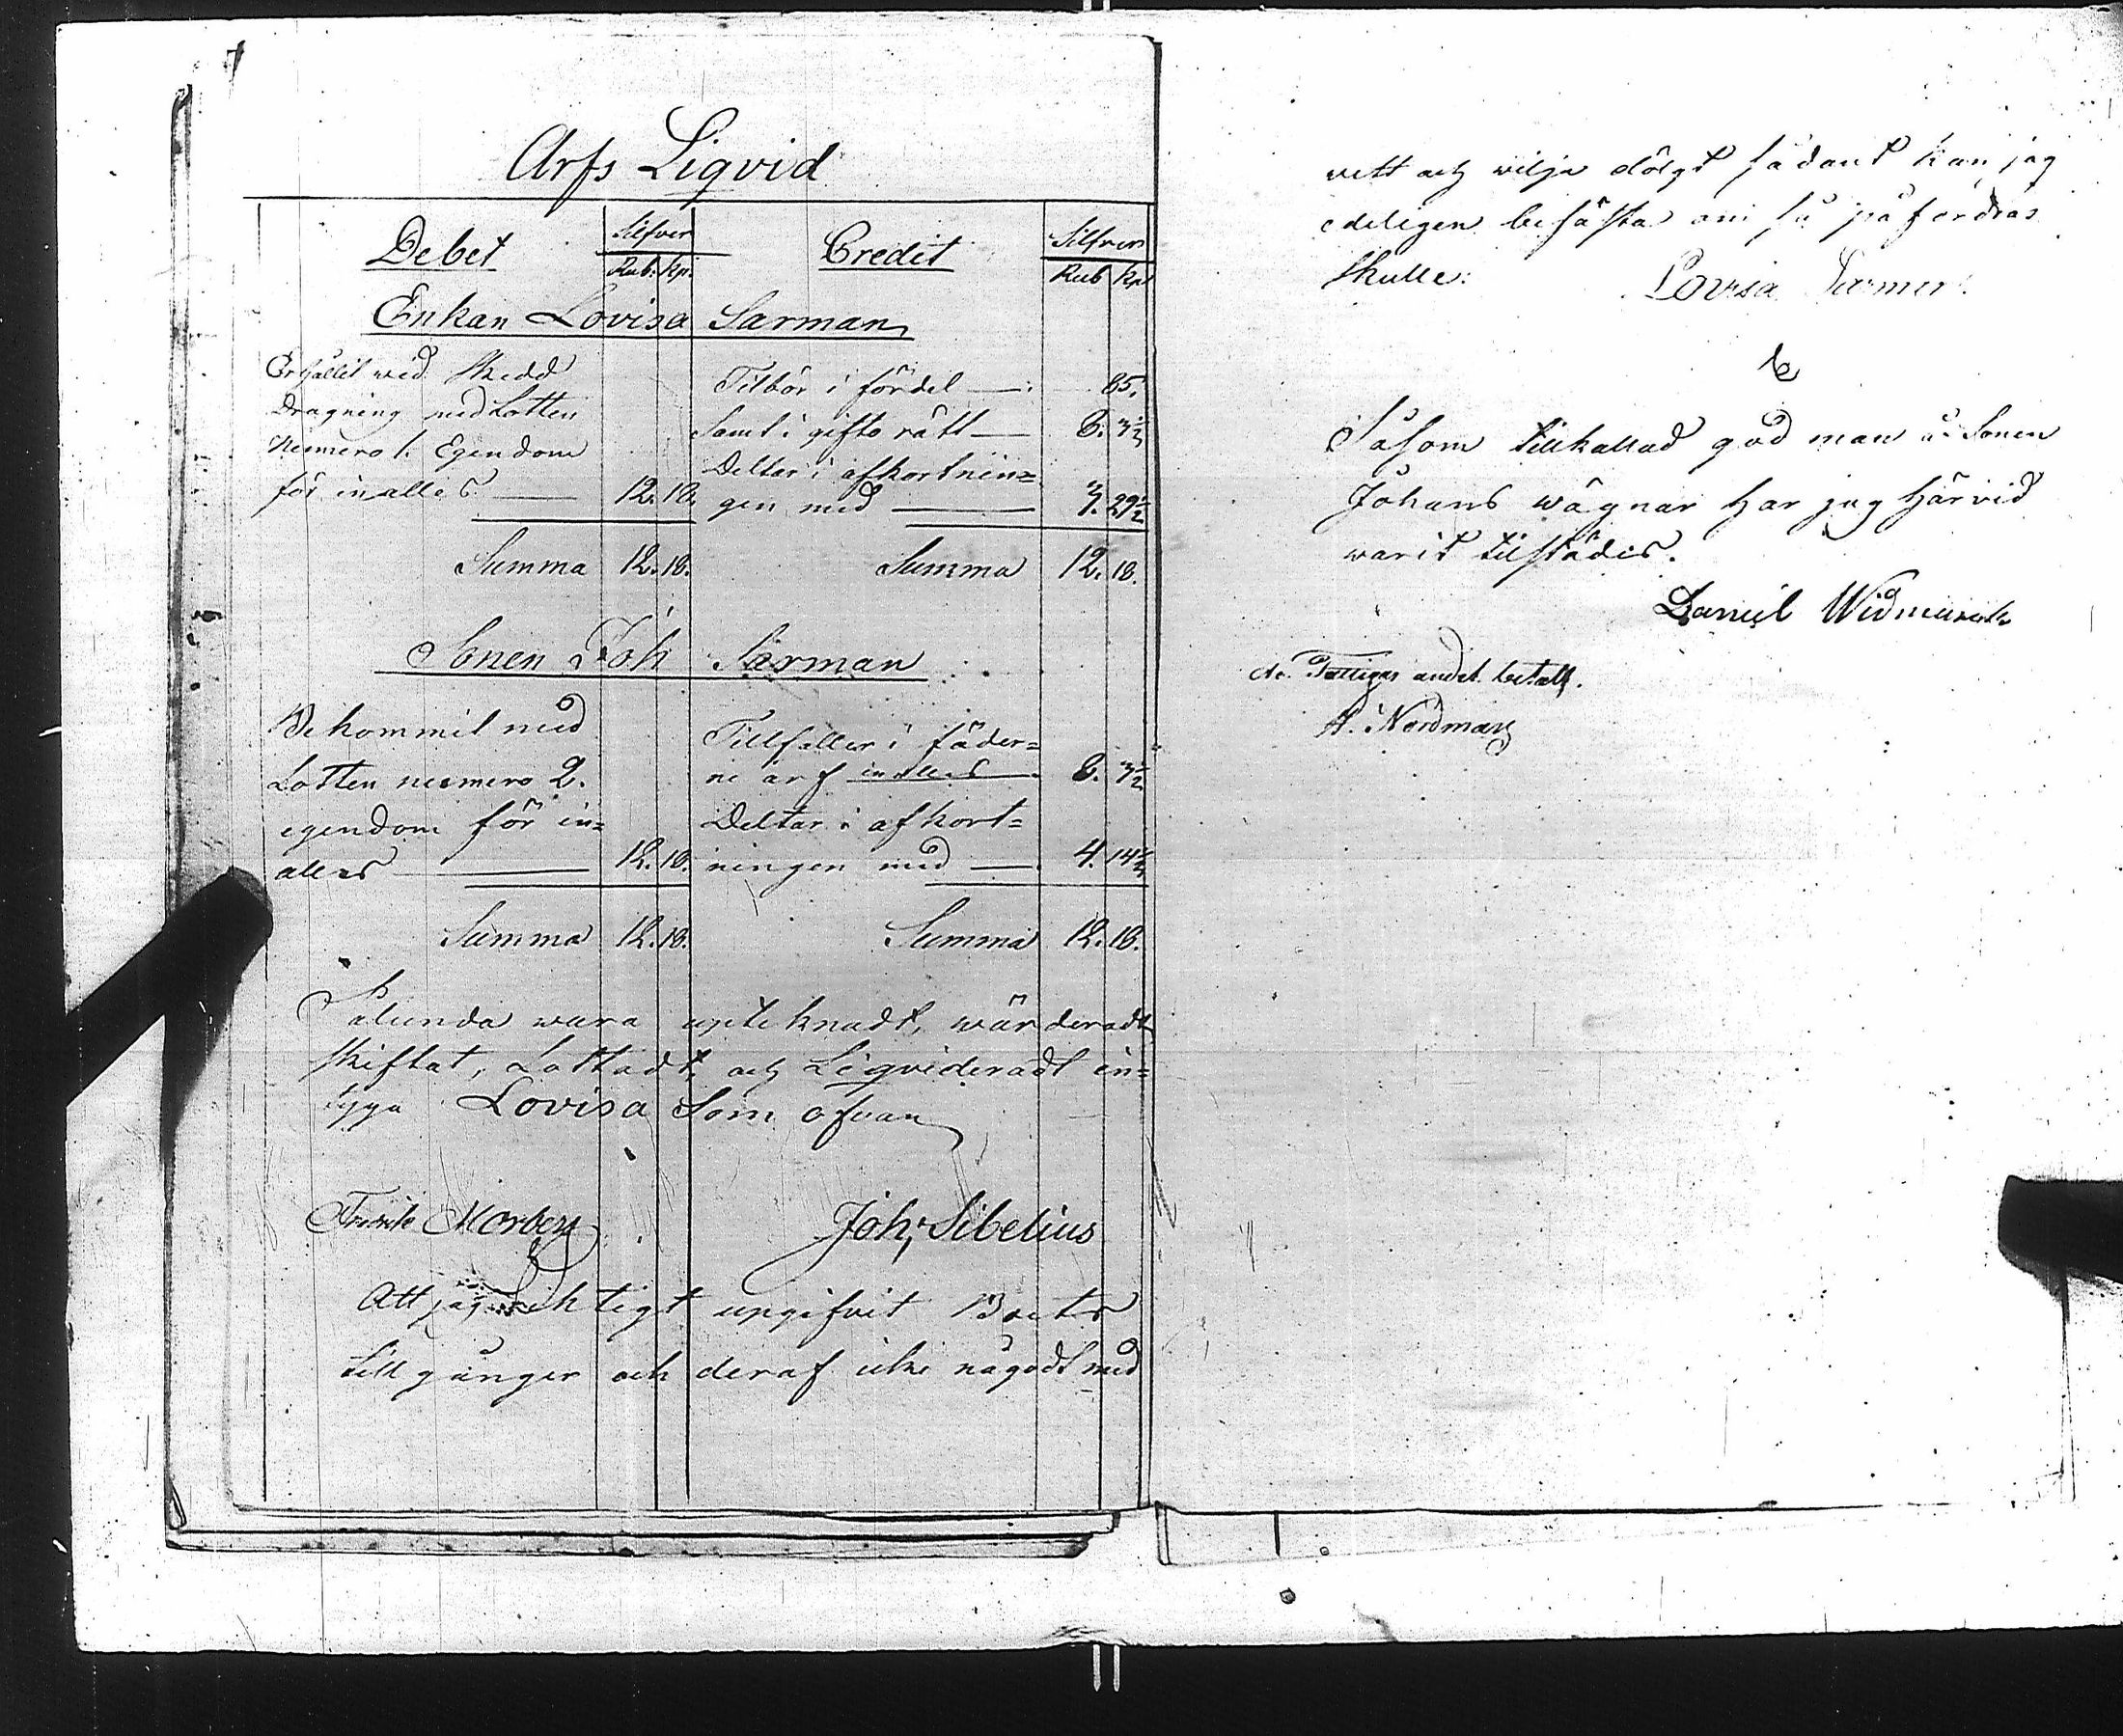 Arfs Liqvid
Debet Silfver Credit Silfver
Rub. Kp. Rub Kp
Enkan Lovisa Sarman
Erhållit wid Skedd
Dragning med Lotten
numero 1. Egendom
för in alles — 12. 18.
Tilbör i fördel — 85.
Samt i gifto rätt — 8. 3½
Deltar i afkortnin=
gen med — 3. 29½
Summa 12. 18. Summa 12. 18.
Sonen Joh Sarman
Bekommit med
Lotten numero 2.
egendom för in=
alles — 12. 18.
Tillfaller i fäder=
ne arf in alles — 8. 3½
Deltar i afkort=
ningen med — 4. 14½
Summa 12. 18. Summa 12. 18.
Sålunda wara upteknadt, wärderadt
skiftat, Lottadt, och Liqvideradt in=
tyga Lovisa Som ofvan
Morberg Joh, Sibelius
Att jag Riktigt upgifvit Boets
till gånger och deraf icke någodt med
vett och wilja dolgt sådant kan jag
edeligen besästa om så påfordras
skulle: Lovisa Sarman
Såsom tillkallad god man å Sonen
Johans wägnar har jag härvid
warit tilstädes.
Daniel Widmark
Fattigas andel betalt.
A. Nordman